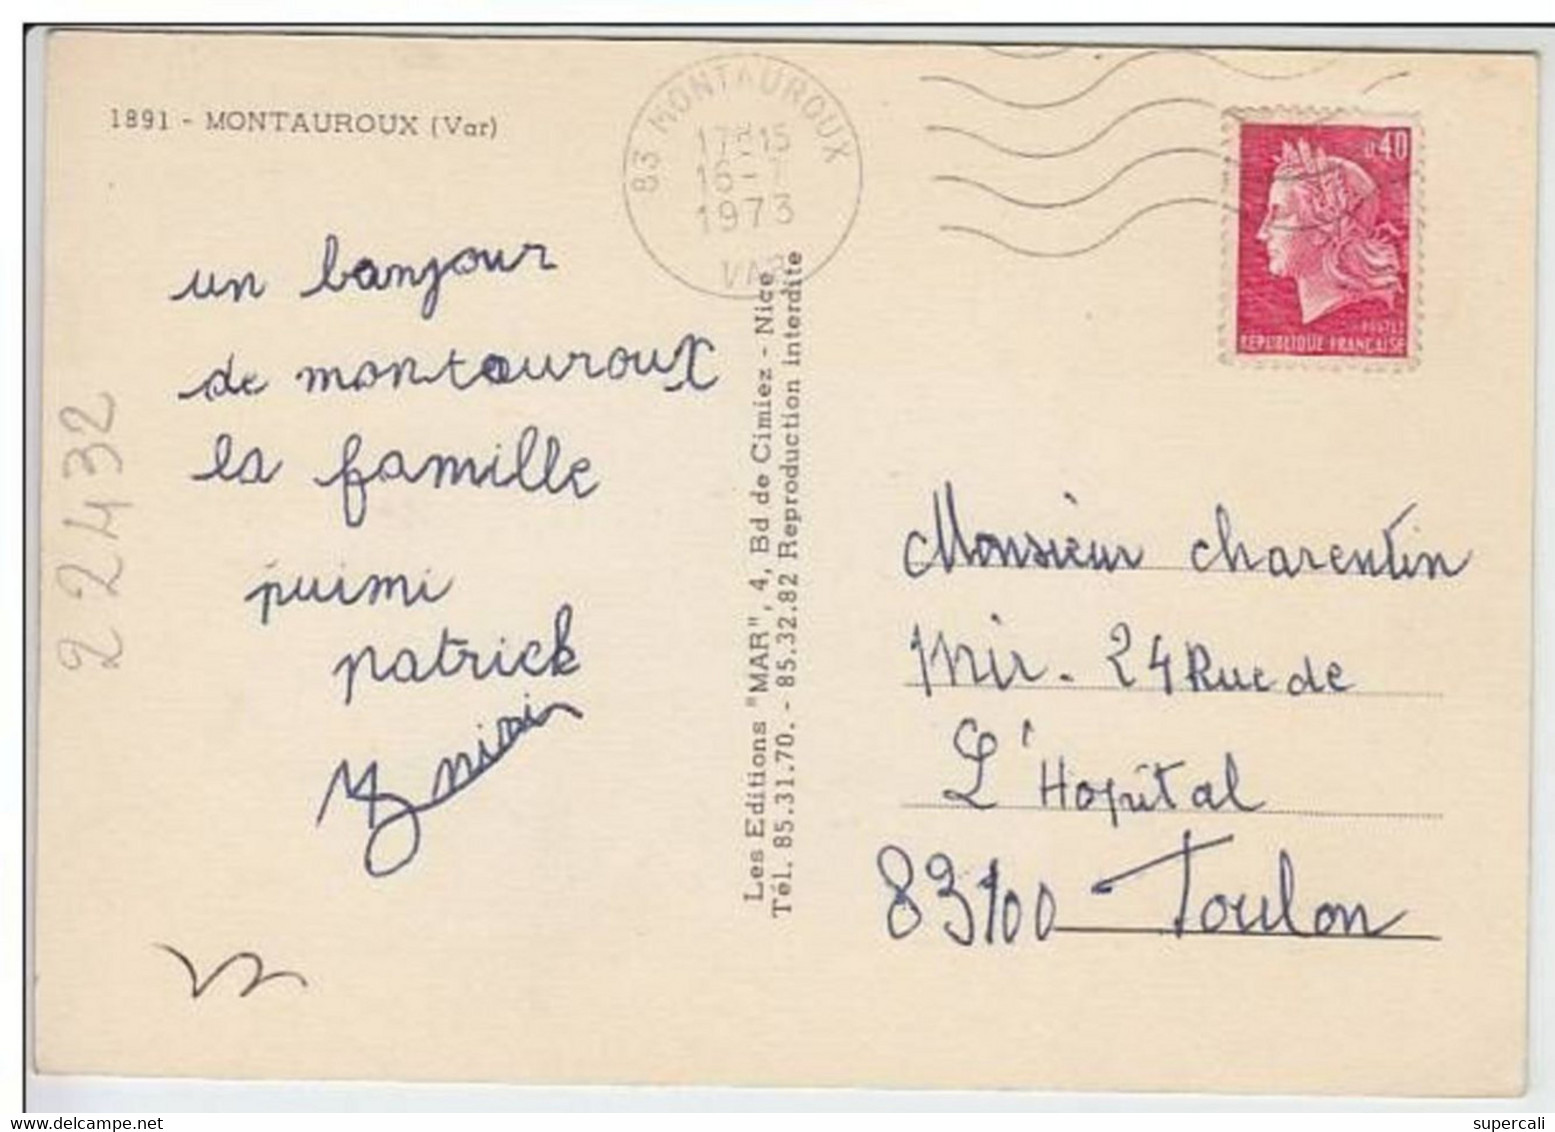 1891 - MONTAUROUX (Var)
83 MONTAUROUX
17H15
16-7
1973
VAR
0,40
POSTES
REPUBLIQUE FRANÇAISE
un bonjour
de montauroux
la famille
puimi
patrick
22432
Les Editions "MAR", 4, Bd de Cimiez - Nice
Tél. 85.31.70. - 85.32.82 Reproduction interdite
Monsieur charentin
mir. 24 Rue de
L'Hopital
83100 Toulon
supercali